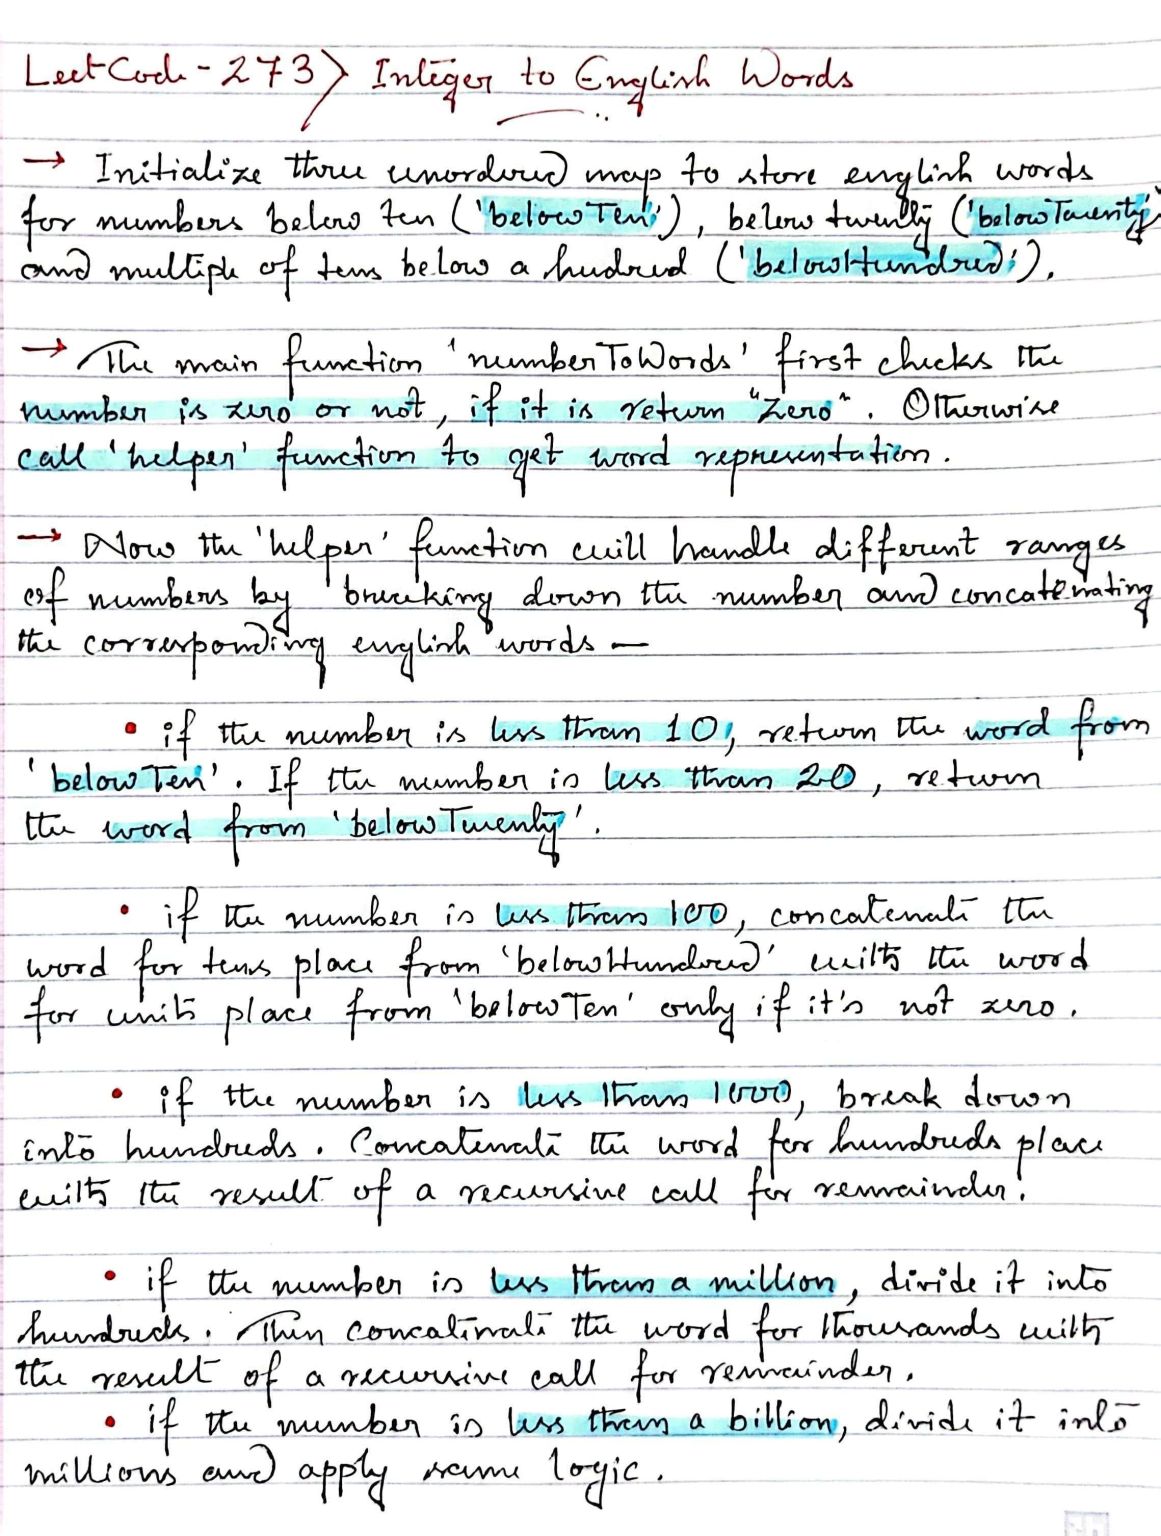 LeetCode - 273) Integer to English Words
→ Initialize three unordered map to store english words
for numbers below ten ('belowTen'), below twenty ('belowTwenty'
and multiple of tens below a hudred ('belowHundred').
→ The main function 'numberToWords' first checks the
number is zero or not, if it is return "Zero". Otherwise
call 'helper' function to get word representation.
→ Now the 'helper' function will handle different ranges
of numbers by breaking down the number and concatenating
the corresponding english words —
• if the number is less than 10, return the word from
'belowTen'. If the number is less than 20, return
the word from 'belowTwenty'.
• if the number is less than 100, concatenate the
word for tens place from 'belowHundred' with the word
for units place from 'belowTen' only if it's not zero.
• if the number is less than 1000, break down
into hundreds. Concatenate the word for hundreds place
with the result of a recursive call for remainder.
• if the number is less than a million, divide it into
hundreds. Then concatenate the word for thousands with
the result of a recursive call for remainder.
• if the number is less than a billion, divide it into
millions and apply same logic.